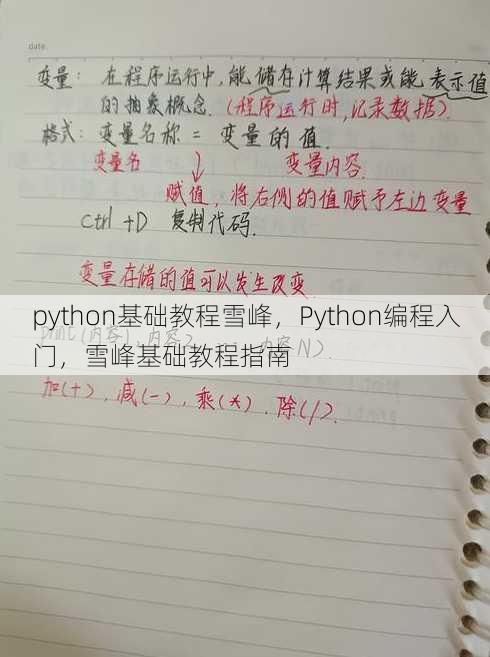 date.
变量: 在程序运行中,能储存计算结果或能表示值
的抽象概念.(程序运行时,记录数据)
格式: 变量名称 = 变量的值.
变量名 ↓ 变量内容.
赋值, 将右侧的值赋予左边变量
ctrl+D 复制代码.
变量存储的值可以发生改变
python基础教程雪峰，Python编程入
门，雪峰基础教程指南
N).
加(+), 减(-), 乘(*). 除(/).